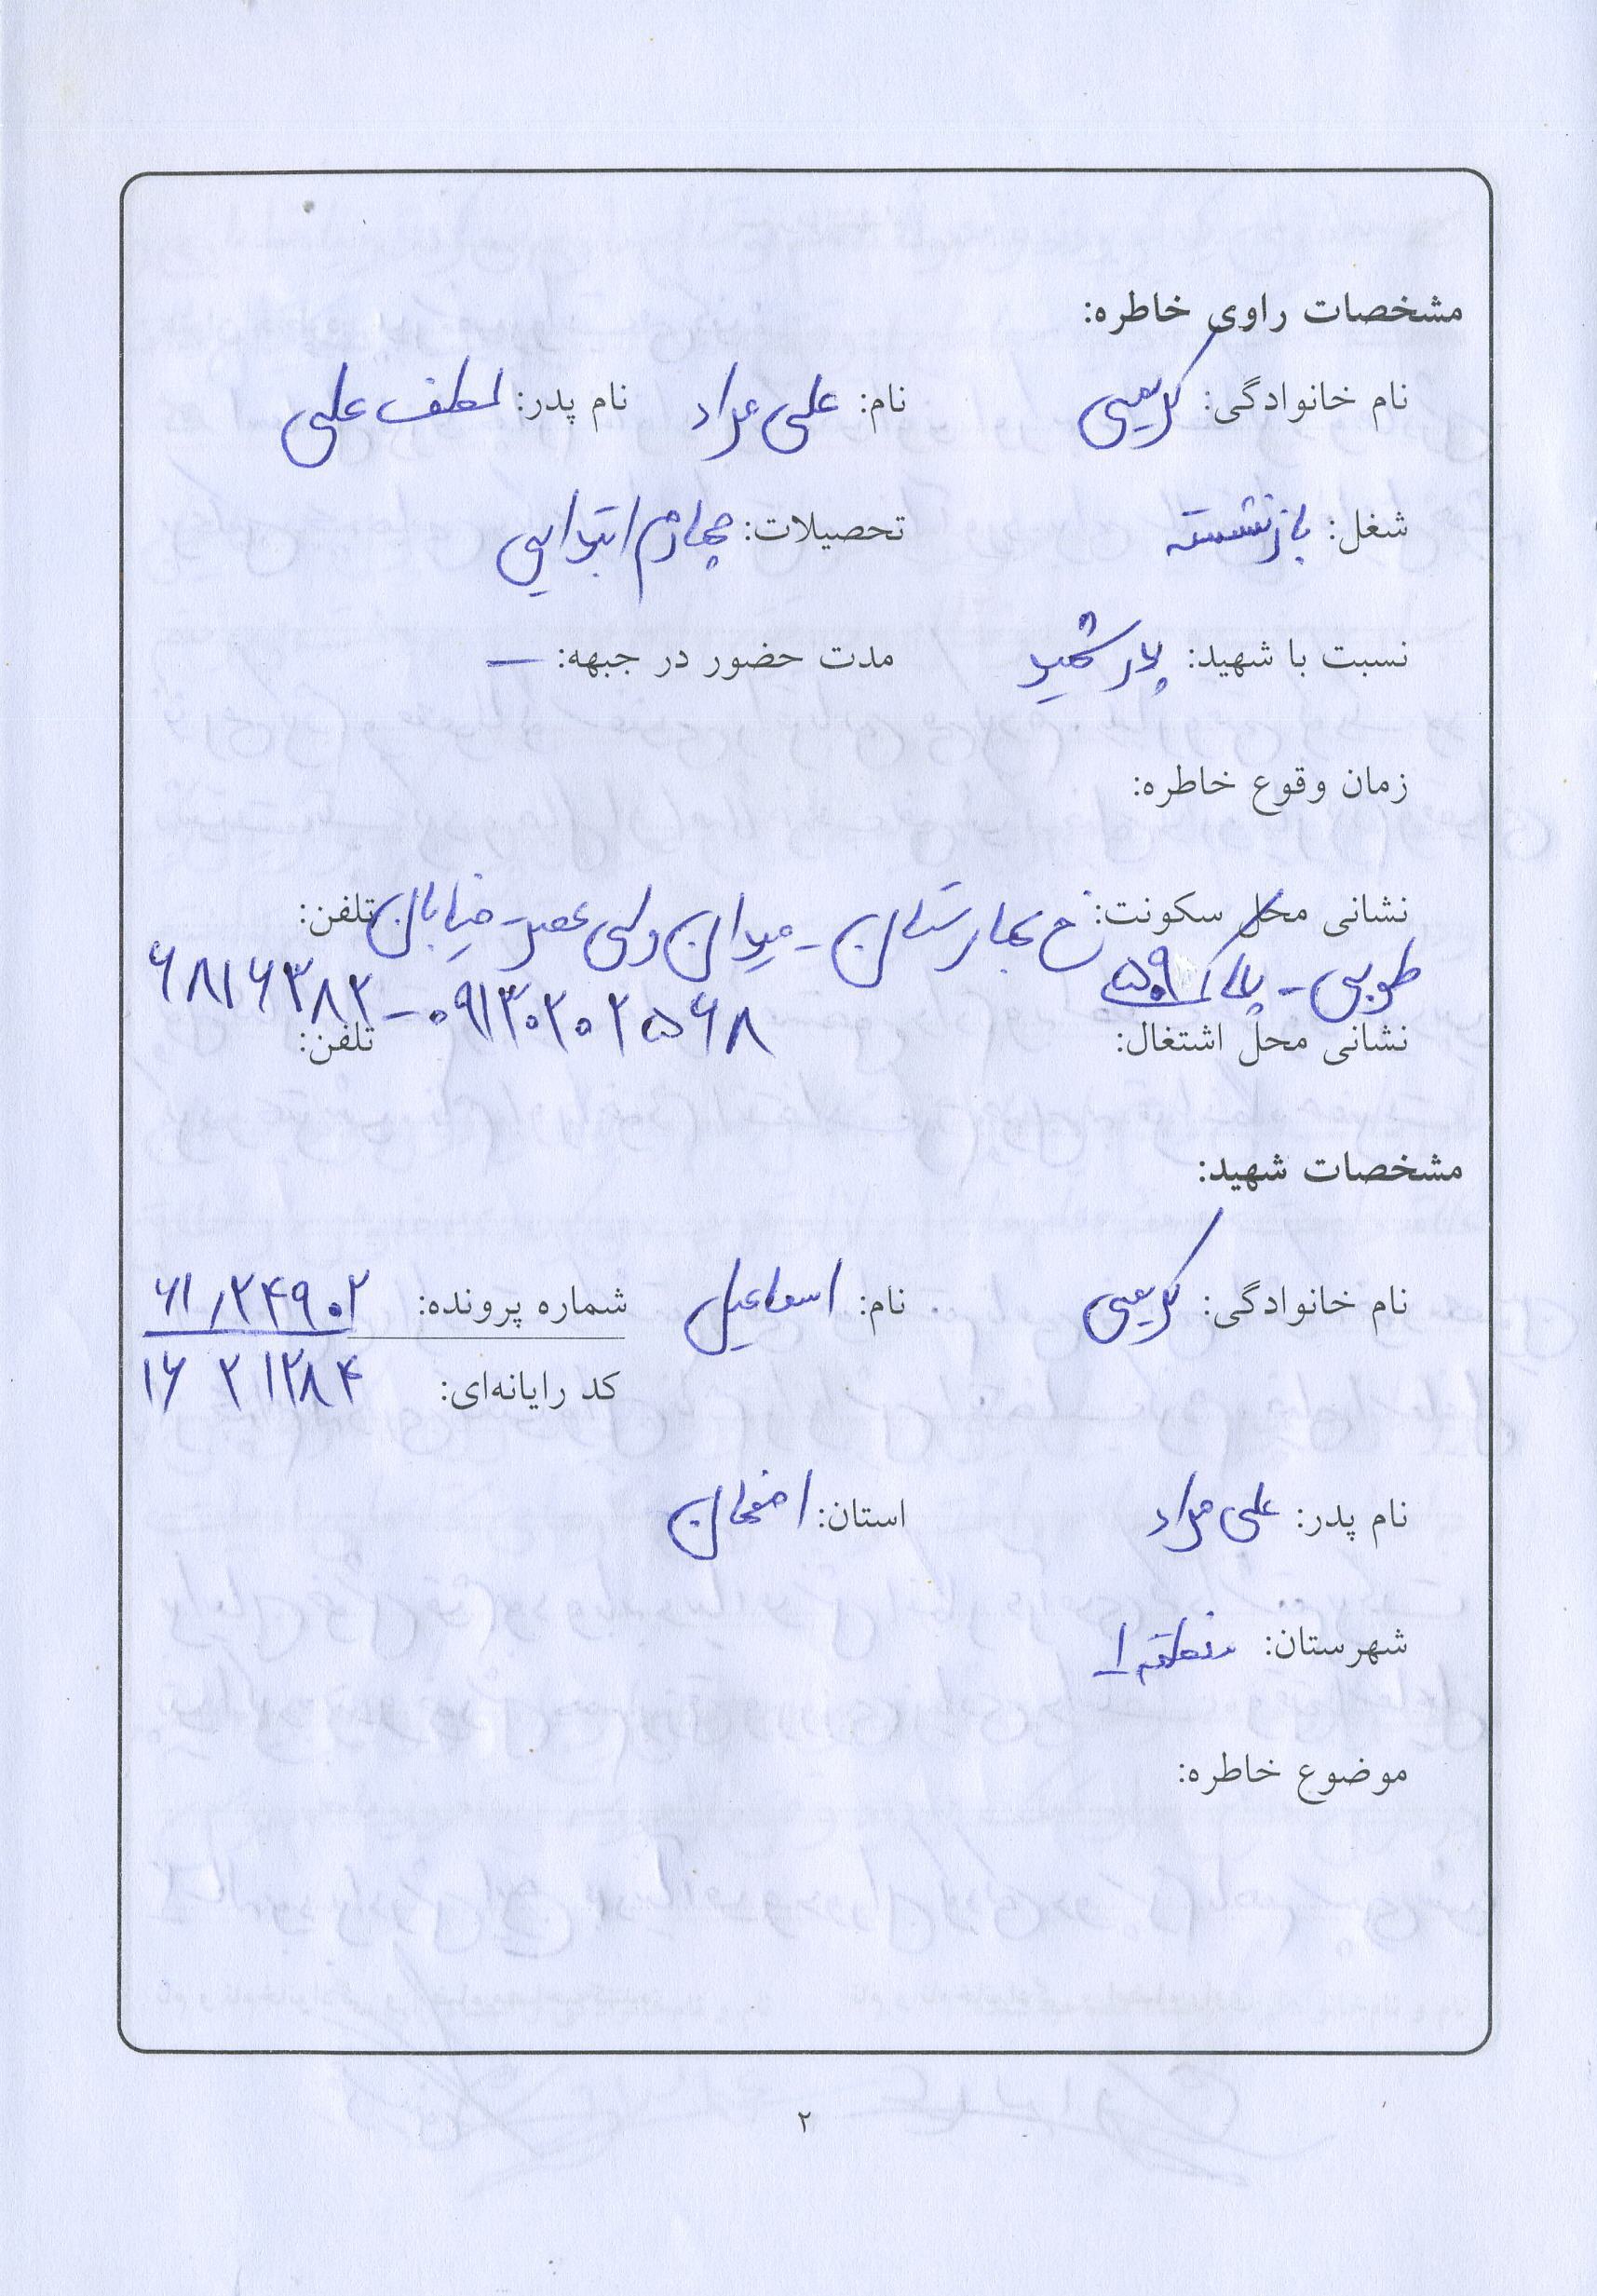 مشخصات راوی خاطره:
نام خانوادگی: کریمی نام: علی مراد نام پدر: لطف علی
شغل: بازنشسته تحصیلات: چهارم ابتدایی
نسبت با شهید: پدر شهید مدت حضور در جبهه: —
زمان وقوع خاطره:
نشانی محل سکونت: خ بهارستان - میدان ولی عصر - خیابان تلفن:
طوبی - پلاک ۵۰۹
۰۹۱۳۰۲۰۲۵۶۸ - ۶۸۱۶۳۸۲
نشانی محل اشتغال: تلفن:
مشخصات شهید:
نام خانوادگی: کریمی نام: اسماعیل شماره پرونده: ۶۱/۲۴۹۰۲
کد رایانه‌ای: ۱۶۲۱۲۸۴
نام پدر: علی مراد استان: اصفهان
شهرستان: منطقه ۱
موضوع خاطره:
۲